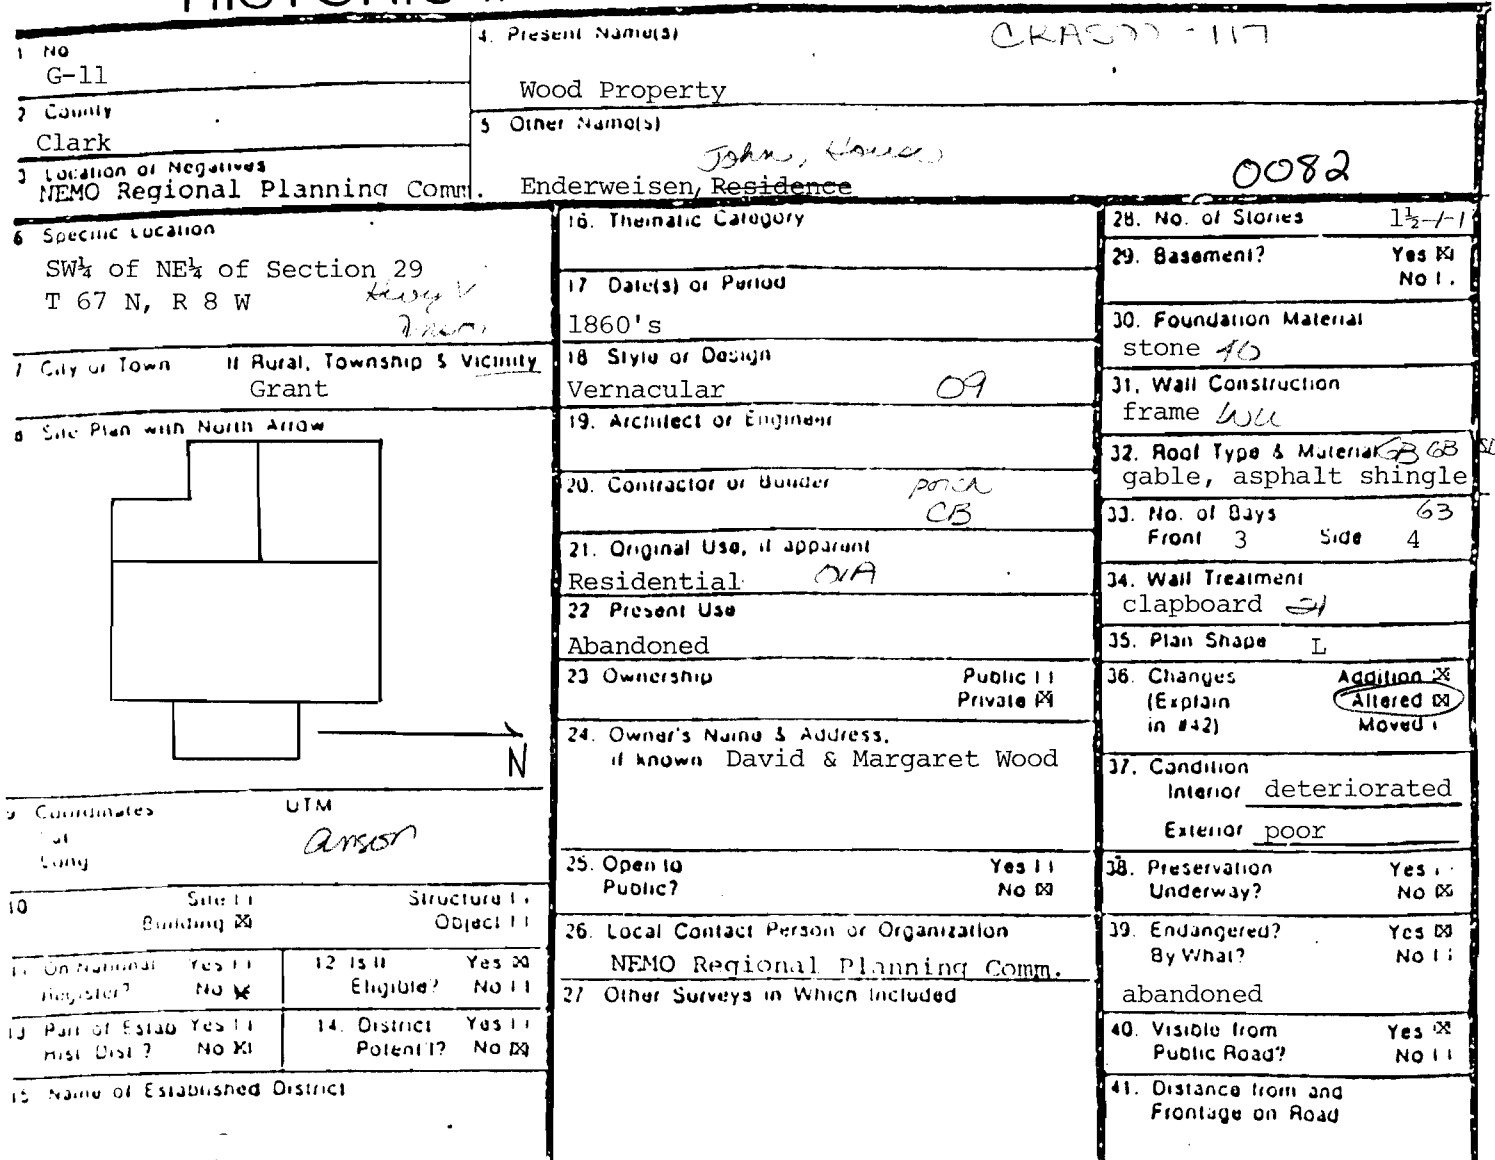 1 No
G-11
2 County
Clark
3 Location of Negatives
NEMO Regional Planning Comm.
4. Present Name(s)
Wood Property
5 Other Name(s)
John, House
Enderweisen, Residence
0082
6 Specific Location
SW¼ of NE¼ of Section 29
T 67 N, R 8 W
Hwy V
7 City or Town If Rural, Township & Vicinity
Grant
8 Site Plan with North Arrow
N
9 Coordinates UTM
Lat
Long
anson
10 Site Structure
Building ☒ Object
11 On National Register? Yes No
12 Is it Eligible? Yes ☒ No
13 Part of Estab Hist. Dist.? Yes No ☒
14. District Potent'l? Yes No ☒
15 Name of Established District
16. Thematic Category
17 Date(s) or Period
1860's
18 Style or Design
Vernacular 09
19. Architect or Engineer
20. Contractor or Builder
porch
CB
21. Original Use, if apparent
Residential 01A
22 Present Use
Abandoned
23 Ownership Public
Private ☒
24. Owner's Name & Address,
if known David & Margaret Wood
25. Open to Yes
Public? No ☒
26. Local Contact Person or Organization
NEMO Regional Planning Comm.
27 Other Surveys in Which Included
28. No. of Stories 1½-/-1
29. Basement? Yes ☒
No
30. Foundation Material
stone 40
31. Wall Construction
frame
32. Roof Type & Material GB GB
gable, asphalt shingle
63
33. No. of Bays
Front 3 Side 4
34. Wall Treatment
clapboard 21
35. Plan Shape L
36. Changes Addition ☒
(Explain Altered ☒
in #42) Moved
37. Condition
Interior deteriorated
Exterior poor
38. Preservation Yes
Underway? No ☒
39. Endangered? Yes ☒
By What? No
abandoned
40. Visible from Yes ☒
Public Road? No
41. Distance from and
Frontage on Road